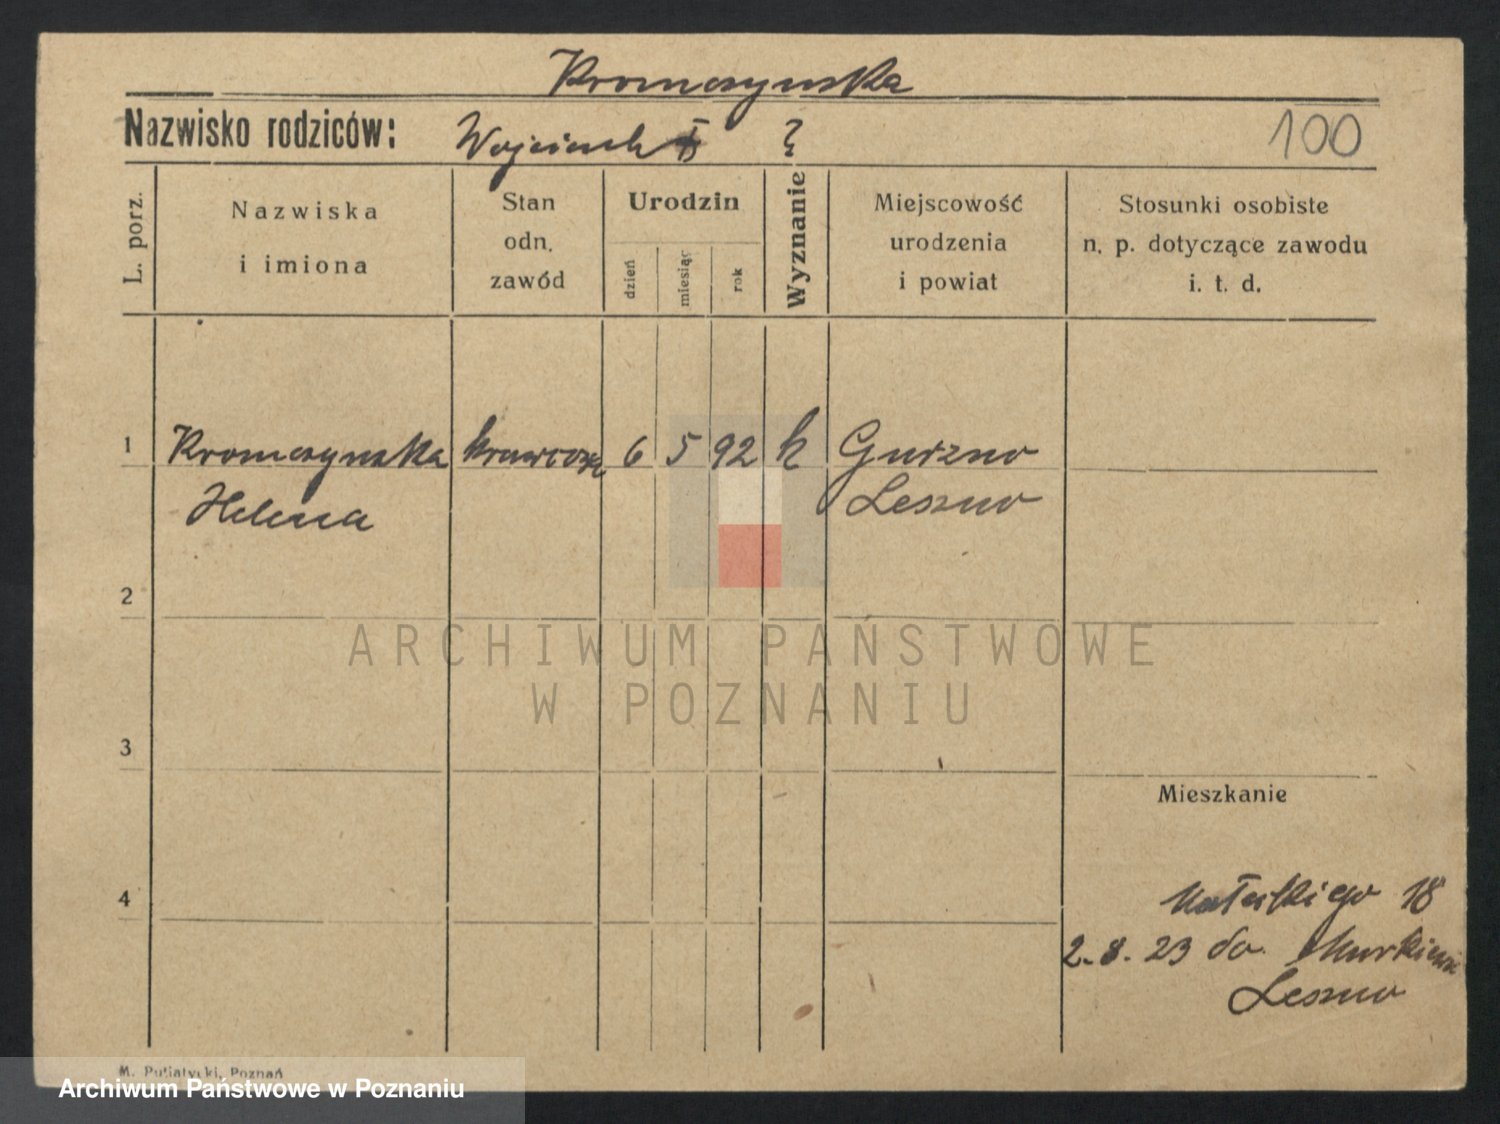 Kromczynska
Nazwisko rodziców: Wojciech ? 100
L. porz.
Nazwiska
i imiona
Stan
odn.
zawód
Urodzin
dzień
miesiąc
rok
Wyznanie
Miejscowość
urodzenia
i powiat
Stosunki osobiste
n. p. dotyczące zawodu
i. t. d.
1 Kromczynska krawcowa 6 5 92 k Gurzno
Helena Leszno
2
ARCHIWUM PAŃSTWOWE
W POZNANIU
3
Mieszkanie
4
18
2. 8. 23 do
Leszno
M. Putiatycki, Poznań
Archiwum Państwowe w Poznaniu